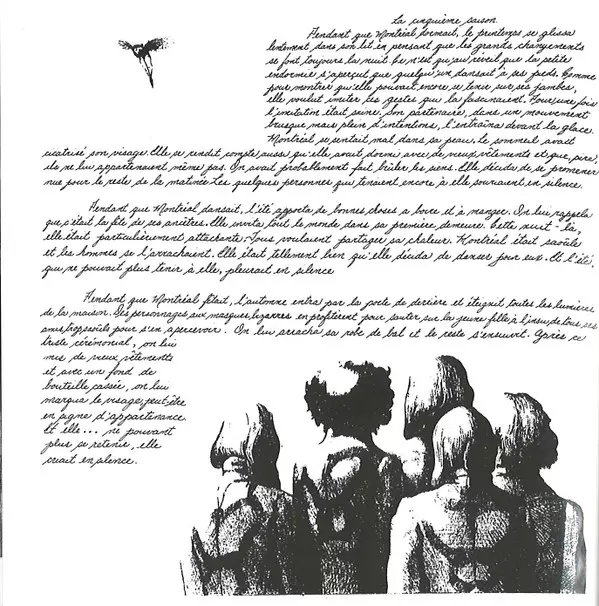 La cinquième saison
Pendant que Montréal dormait, le printemps se glissa
lentement dans son lit en pensant que les grands changements
se font toujours la nuit. Ce n'est qu'au réveil que la petite
endormie s'aperçut que quelqu'un dansait à ses pieds. Comme
pour montrer qu'elle pouvait encore se tenir sur ses jambes,
elle voulut imiter les gestes que la fascinaient. Pour une fois
l'imitation était saine. Son partenaire, dans un mouvement
brusque mais plein d'intentions, l'entraîna devant la glace.
Montréal se sentait mal dans sa peau. Le sommeil avait
cicatrisé son visage. Elle se rendit compte aussi qu'elle avait dormi avec de vieux vêtements et que, pire,
ils ne lui appartenaient même pas. On avait probablement fait brûler les siens. Elle décida de se promener
nue pour le reste de la matinée. Les quelques personnes qui tenaient encore à elle souriaient en silence.
Pendant que Montréal dansait, l'été apporta de bonnes choses à boire et à manger. On lui rappela
que c'était la fête de ses ancêtres. Elle invita tout le monde dans sa première demeure. Cette nuit-là,
elle était particulièrement attachante. Tous voulaient partager sa chaleur. Montréal était saoûle
et les hommes se l'arrachaient. Elle était tellement bien qu'elle décida de danser pour eux. Et l'été,
qui ne pouvait plus tenir à elle, pleurait en silence
Pendant que Montréal fêtait, l'automne entra par la porte de derrière et éteignit toutes les lumières
de la maison. Des personnages aux masques bizarres en profitèrent pour sauter sur la jeune fille à l'insu de tous ses
amis trop saoûls pour s'en apercevoir. On lui arracha sa robe de bal et le reste s'ensuivit. Après ce
triste cérémonial, on lui
mis de vieux vêtements
et avec un fond de
bouteille cassée, on lui
marqua le visage, peut-être
en signe d'appartenance.
Et elle... ne pouvant
plus se retenir, elle
criait en silence.